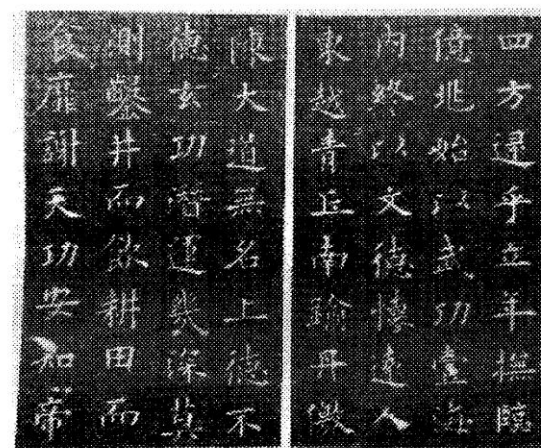 四方逮乎立年撫臨
億兆始以武功壹海
内終以文德懷遠人
東越青丘南踰丹徼
陳大道無名上德不
德玄功潛運幾深莫
測鑿井而飲耕田而
食靡謝天功安知帝